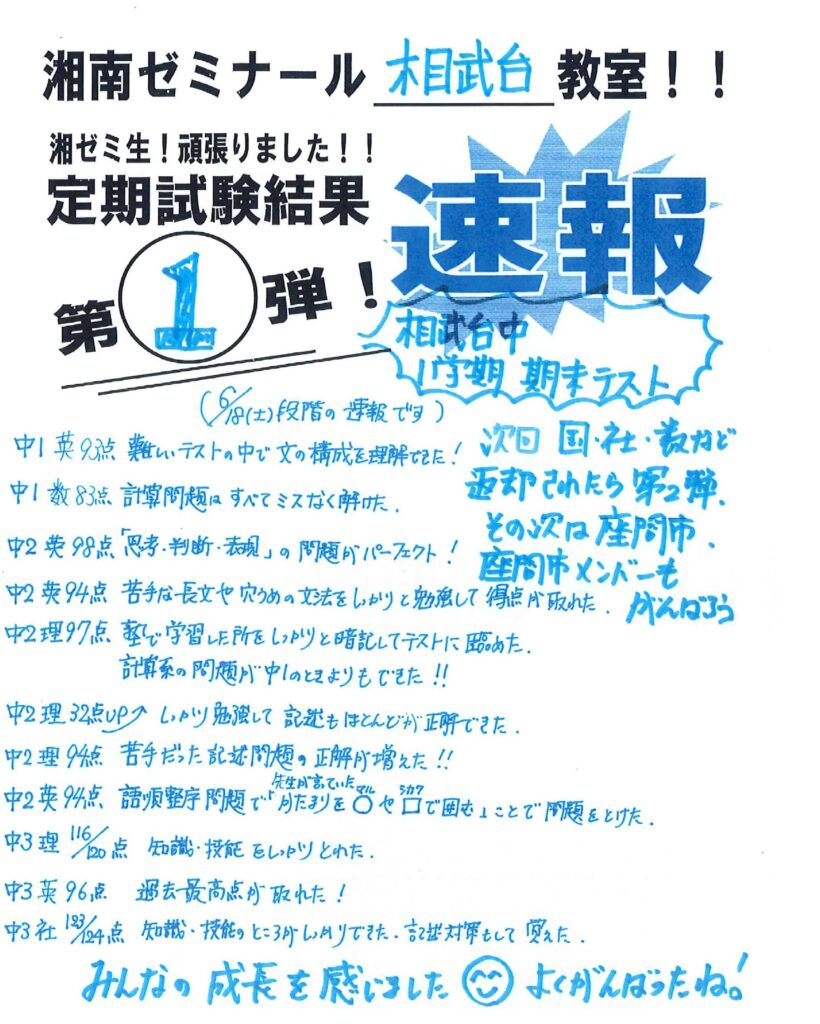 湘南ゼミナール 相武台 教室！！
湘ゼミ生！頑張りました！！
定期試験結果
速報
第1弾！
相武台中
1学期 期末テスト
(6/18(土)段階の速報です)
中1 英93点 難しいテストの中で文の構成を理解できた！
中1 数83点 計算問題はすべてミスなく解けた.
中2 英98点「思考・判断・表現」の問題がパーフェクト！
中2 英94点 苦手な長文や穴うめの文法をしっかりと勉強して得点が取れた.
中2 理97点 塾で学習した所をしっかりと暗記してテストに臨めた.
計算系の問題が中1のときよりもできた!!
中2 理32点UP しっかり勉強して記述もほとんどが正解できた.
中2 理94点 苦手だった記述問題の正解が増えた!!
中2 英94点 語順整序問題で「先生が言っていたかたまりを○マルや□シカクで囲む」ことで問題をとけた.
中3 理 116/120点 知識・技能をしっかりとれた.
中3 英96点 過去最高点が取れた！
中3 社 123/124点 知識・技能のところがしっかりできた. 記述対策もして覚えた.
次回 国・社・数など
返却されたら第2弾.
その次は座間市.
座間市メンバーも
がんばろう
みんなの成長を感じました よくがんばったね!